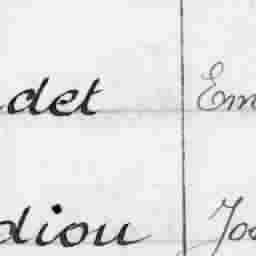 det Em
diou Jos